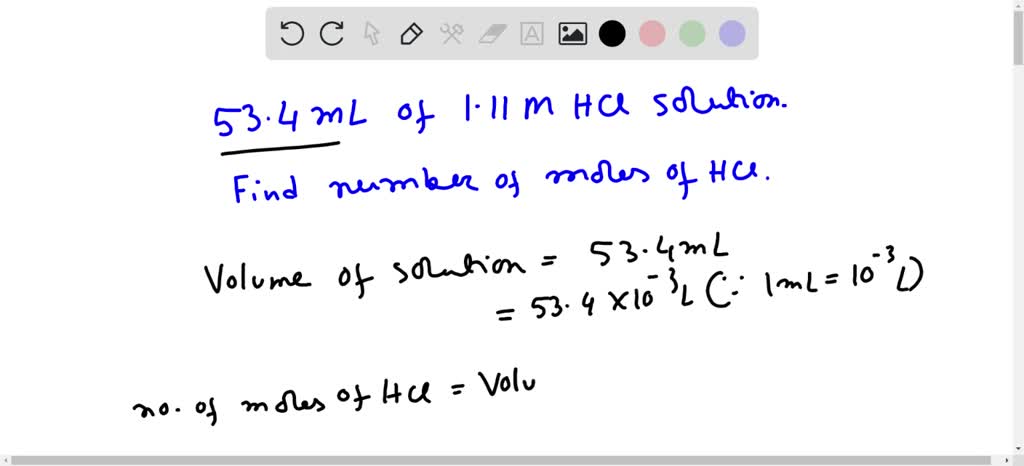 53.4 mL of 1.11 M HCl solution.
Find number of moles of HCl.
Volume of solution = 53.4 mL
= 53.4 × 10⁻³ L (∵ 1 mL = 10⁻³ L)
no. of moles of HCl = Volu